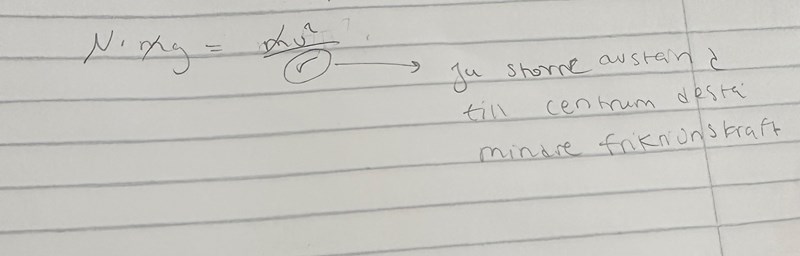 N · mg = mv² / r → Ju större avstånd
till centrum desto
mindre friktionskraft